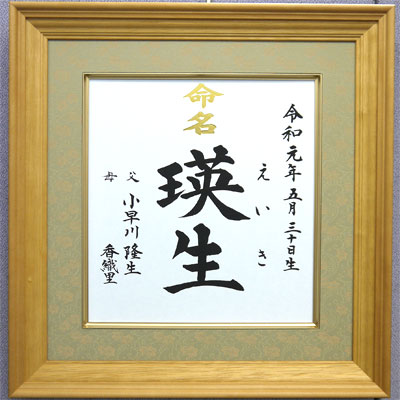 命名
令和元年五月三十日生
えいき
瑛生
父 小早川 隆生
母 香織里